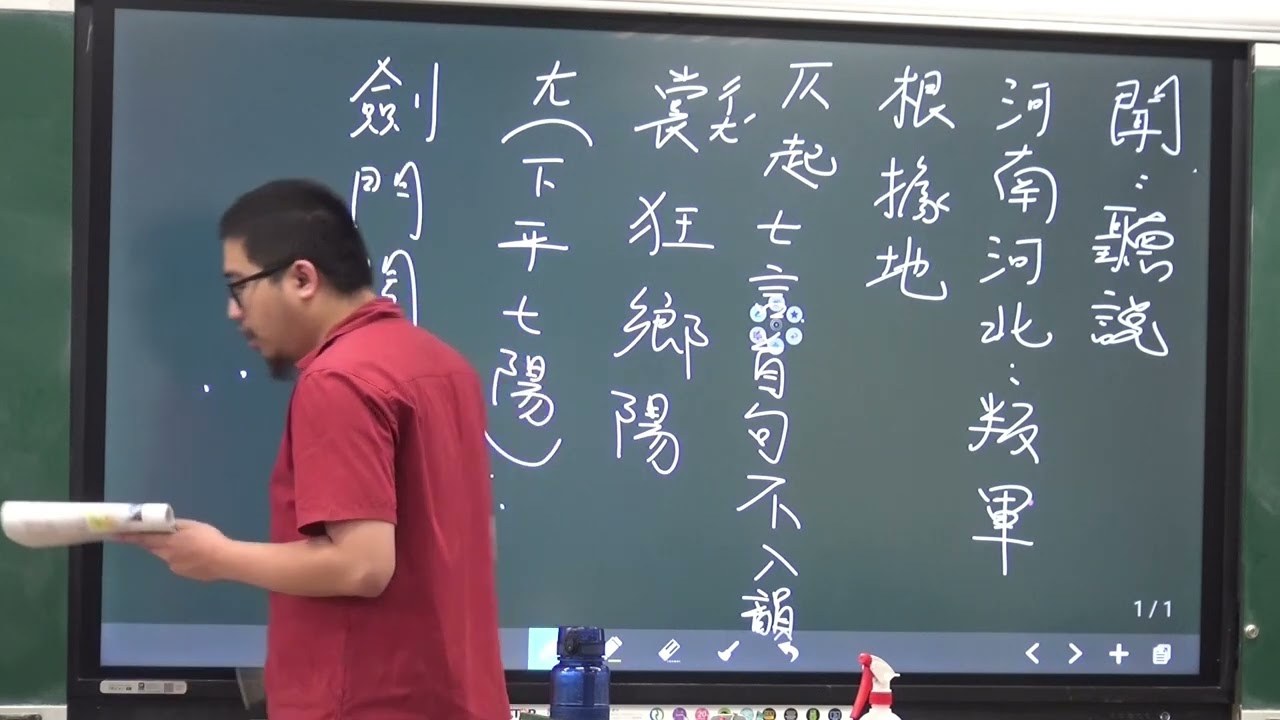 聞：聽說
河南河北：叛軍
根據地
仄起 七言首句不入韻
裳ㄔㄤˊ狂鄉陽
ㄤ（下平七陽）
劍門關
1/1